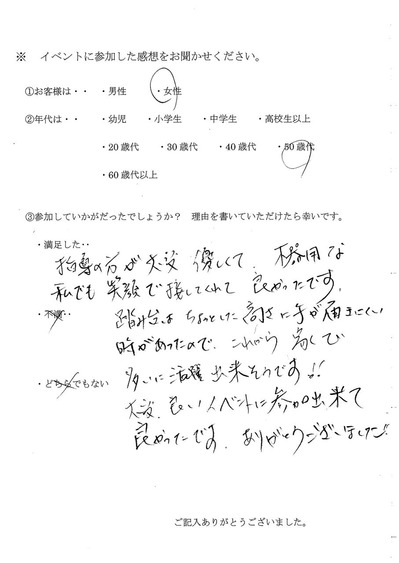 ※ イベントに参加した感想をお聞かせください。
①お客様は・・ ・男性 ・女性
②年代は・・ ・幼児 ・小学生 ・中学生 ・高校生以上
・20歳代 ・30歳代 ・40歳代 ・50歳代
・60歳代以上
③参加していかがだったでしょうか? 理由を書いていただけたら幸いです。
・満足した‥
指導の方が大変優しくて、不器用な
私でも笑顔で接してくれて良かったです。
・不満‥
踏み台はちょっとした高さに手が届きにくい
時があったので、これから家で
・どちらでもない
多いに活躍出来そうです!!
大変良いイベントに参加出来て
良かったです。ありがとうございました!
ご記入ありがとうございました。